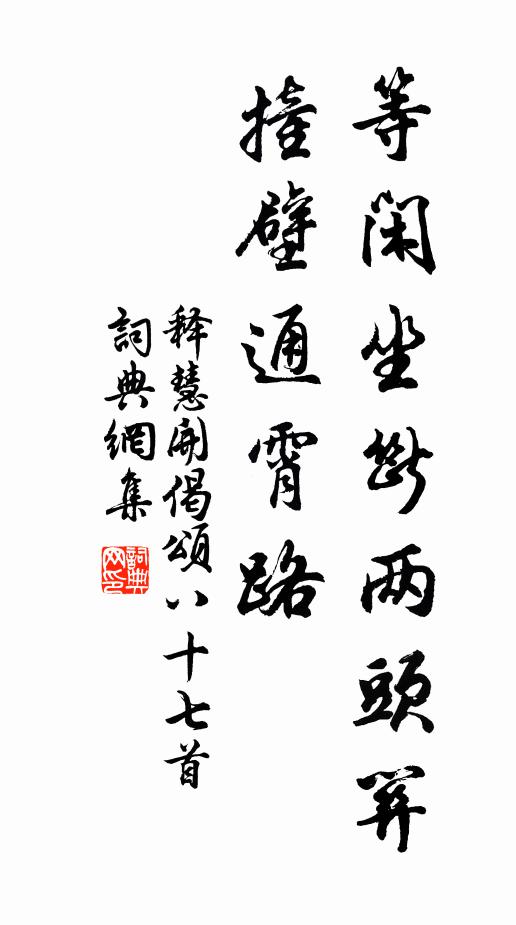 等閑坐斷两頭關
撞壁通霄路
释慧開偈頌八十七首
詞典網集
詞典网印